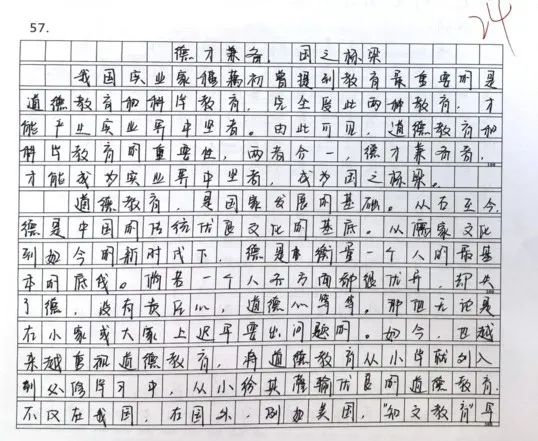 57.
24
德才兼备，国之栋梁
我国实业家穆藕初曾提到教育最重要的是
道德教育和科学教育，完全虔此两种教育，才
能产生实业界中坚者。由此可见，道德教育和
科学教育的重要性，两者合一，德才兼备者，
才能成为实业界中坚者，成为国之栋梁。
道德教育，是国家发展的基础。从古至今，
德是中国的传统优良文化的基底。从儒家文化
到如今的新时代下，德是衡量一个人的最基
本的底线。倘若一个人各方面都很优异，却失
了德，没有责任心，道德心等等。那他无论是
在小家或大家上迟早要出问题的。如今，也越
来越重视道德教育，将道德教育从小学就列入
到必修学习中，从小给其灌输优良的道德教育。
不仅在我国，在国外，例如美国，“知文教育”早